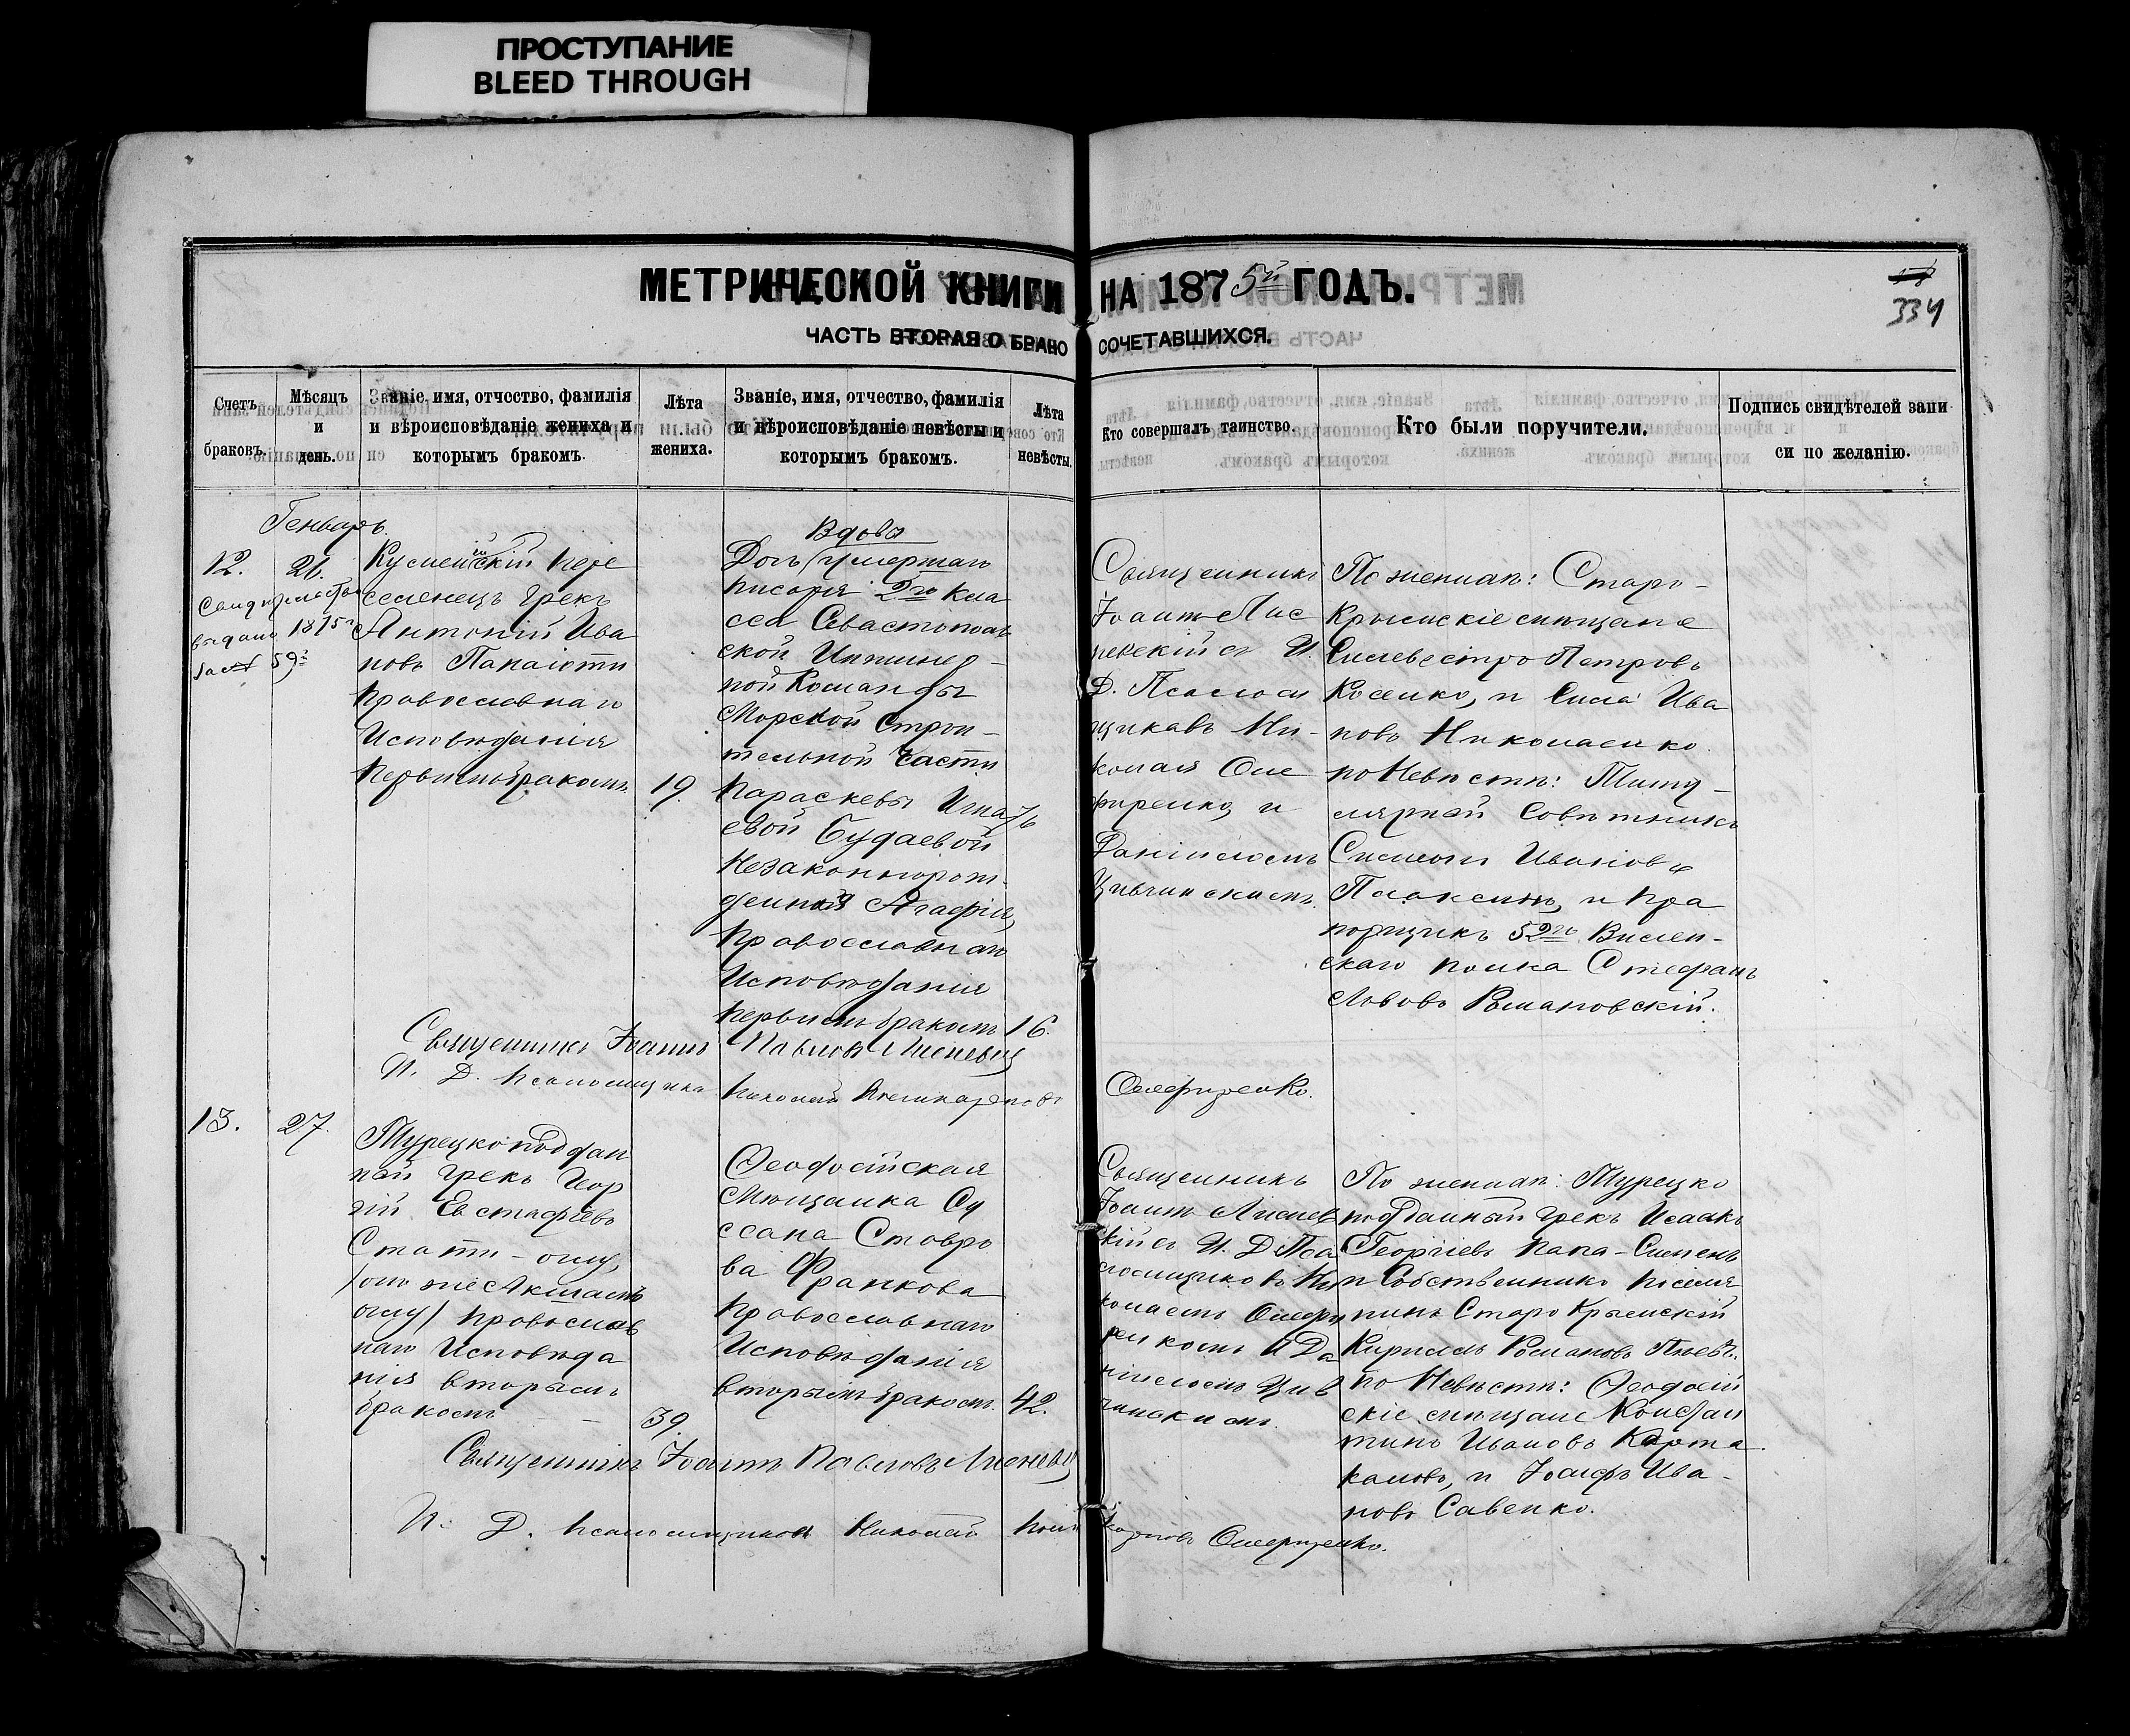 ПРОСТУПАНИЕ
BLEED THROUGH
МЕТРИЧЕСКОЙ КНИГИ НА 1875й ГОДЪ.
334
ЧАСТЬ ВТОРАЯ О БРАКО СОЧЕТАВШИХСЯ.
Счетъ браковъ.
Мѣсяцъ и день.
Званіе, имя, отчество, фамилія и вѣроисповѣданіе жениха и которымъ бракомъ.
Лѣта жениха.
Званіе, имя, отчество, фамилія и вѣроисповѣданіе невѣсты и которымъ бракомъ.
Лѣта невѣсты.
Кто совершалъ таинство.
Кто были поручители.
Подпись свидѣтелей записи по желанію.
Генварь
12.
26.
выдано 1875
59
пересе
селенецъ Грекъ
Антоній Ива
новъ Папаіоти
Православнаго
Исповѣданія
первымъ бракомъ.
19.
Вдовы
Дочь умершаго
писаря 2го кла
сса Севастополь
ской Инжинер-
ной Команды
Морской Строи-
тельной Части
Параскевы Игнать
евой Будаевой
Незаконнорож-
денная Агафія,
Православнаго
Исповѣданія
первымъ бракомъ
16.
Священникъ
Іоаннъ Лис
невскій съ И.
Д. Псаломщ
щикавъ Ни-
колая Оле
фиренко, и
Даніиломъ
По женихѣ: Старо-
Крымскіе мѣщане
Силевестръ Петровъ
и Сила Ива
новъ Николаенко.
по Невѣстѣ: Титу-
лярной Совѣтникъ
Симеонъ Ивановъ
Плаксинъ, и пра
порщикъ 52го Вилен-
скаго полка Стефанъ
Львовъ Романовскій.
Священникъ Іоаннъ Павловъ Лисневскій
И. Д. псаломщика Николай Поликарповъ Олефиренко.
13.
27.
Турецко поддан
ной Грекъ Геор
гій Евстафіевъ
Стати-оглу,
оглу) православ
наго Исповѣда
нія вторымъ
бракомъ
39.
Феодосійская
Мѣщанка Су
ссана Ставро
ва Франкова
Православнаго
Исповѣданія
вторымъ бракомъ.
42.
Священникъ
Іоаннъ Лиснев
скій съ И. Д. Пса
ломщиковъ Ни
колаемъ Олефи
ренкомъ и Да
ніиломъ
По женихѣ: Турецко
подданный Грекъ Исаакъ
Георгіевъ Папа-Сименъ
и Собственникъ поселя
нинъ Старо Крымскій
Кириллъ Романовъ
по Невѣстѣ: Феодосій
скіе мѣщане Констан
тинъ Ивановъ Карта
и Іосифъ Ива-
новъ Савенко.
Священникъ Іоаннъ Павловъ Лисневскій
И. Д. псаломщика Николай Поликарповъ Олефиренко.